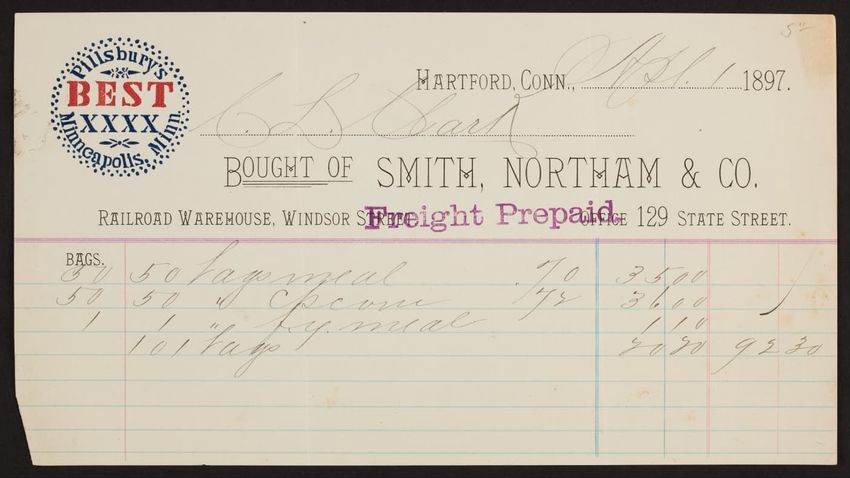 5
Pillsbury's
BEST
XXXX
Minneapolis, Minn.
HARTFORD, CONN., Apl. 1 1897.
C. L. Clark
BOUGHT OF SMITH, NORTHAM & CO.
RAILROAD WAREHOUSE, WINDSOR STREET. OFFICE 129 STATE STREET.
Freight Prepaid.
BAGS.
50 50 bags meal .70 35 00
50 50 " cr corn 72 36 00
1 1 " meal 1 10
101 bags 20 20 92 30